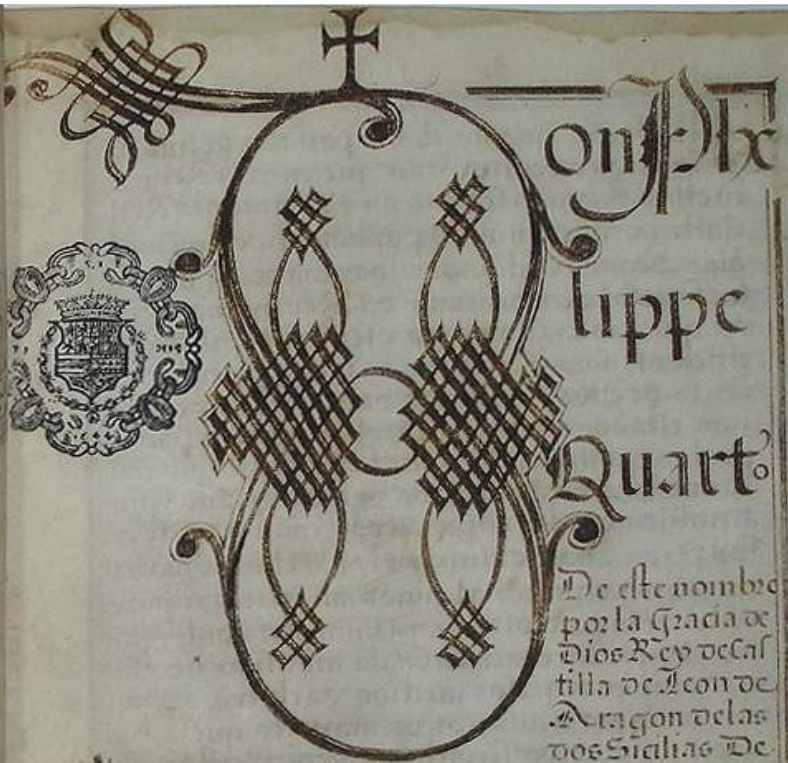 on Ph
lippe
Quarto
De este nombre
por la Gracia de
Dios Rey de Cas
tilla de Leon de
Aragon de las
dos Sicilias De